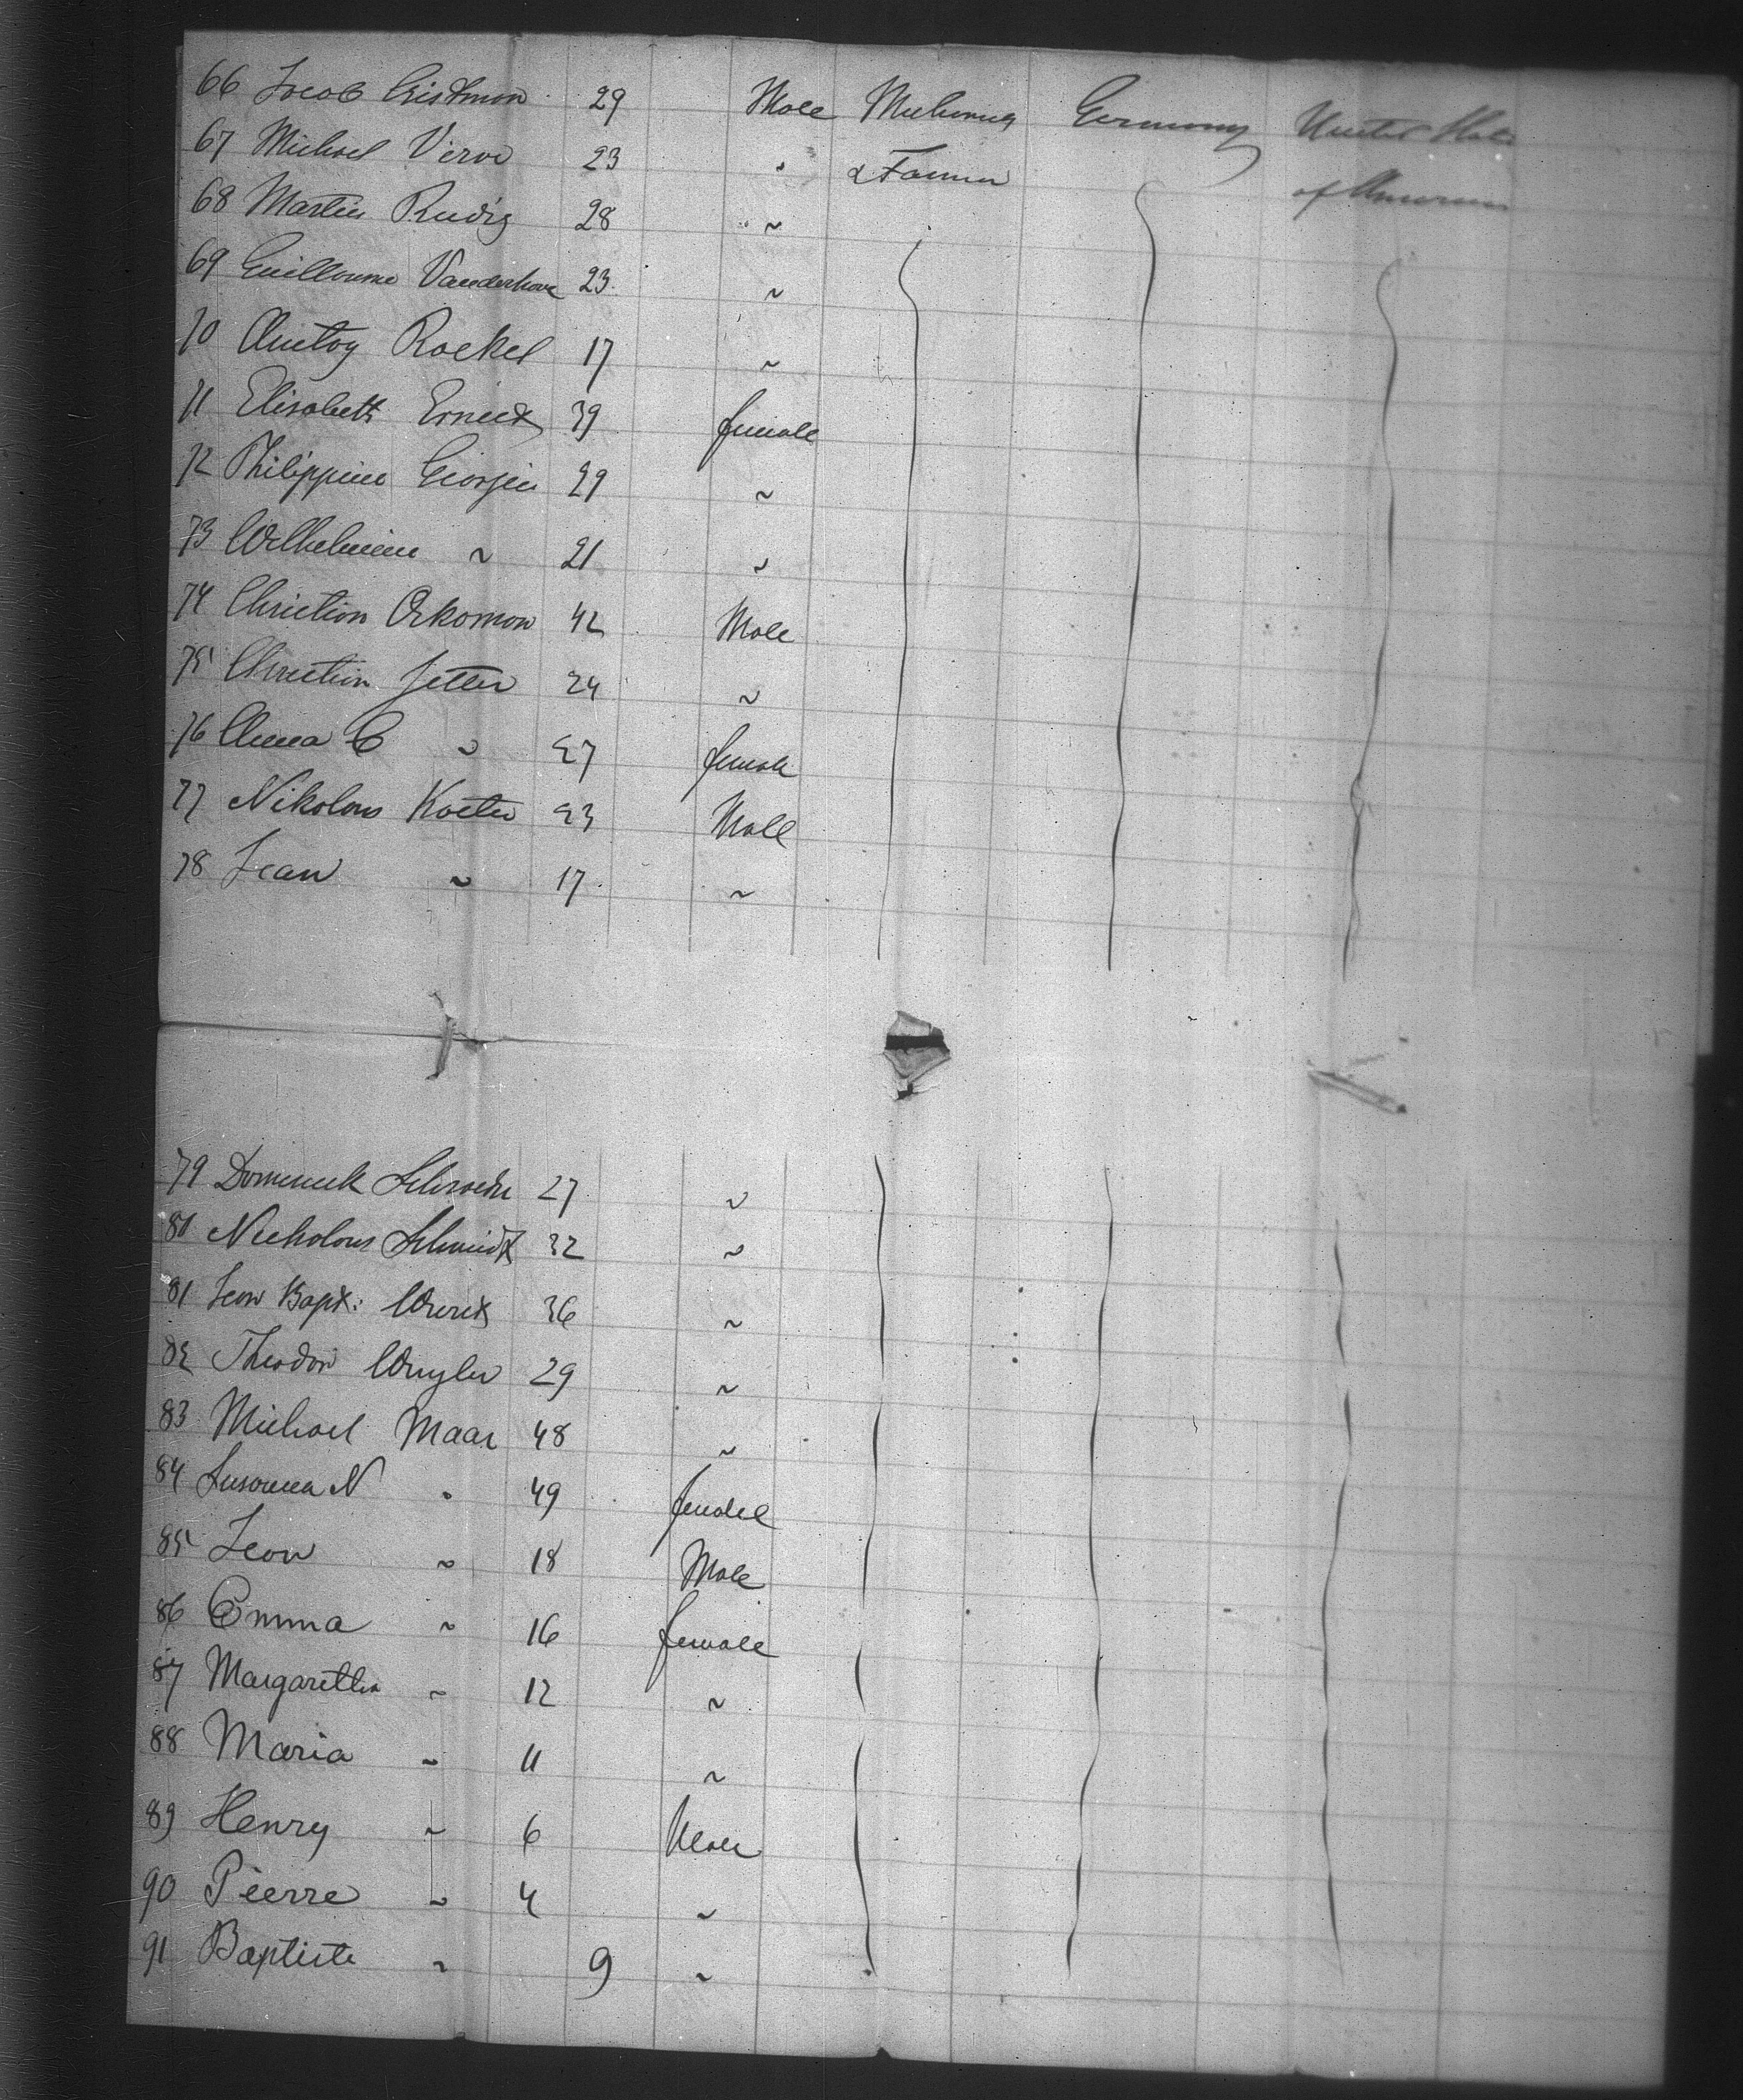 66 Jacob Cristman 29 Male Mechanic Germany United States
67 Michael Verve 23 " & Farmer of America
68 Martin Rudig 28 "
69 Guillaume Vanderhove 23 "
70 Antoy Roekel 17 "
71 Elisabeth 39 female
72 Philippine Giorgin 29 "
73 Wilhelmine " 21 "
74 Christian Orkoman 42 Male
75 Christian Jetter 24 "
76 Anna C " 27 female
77 Nikolaus Koeter 23 Male
78 Jean " 17 "
79 Dominick Schroeder 27 "
80 Nicholaus Schmidt 32 "
81 Jean Bapt: 36 "
82 Theodor 29 "
83 Michael Maar 48 "
84 Susanna N " 49 female
85 Jean " 18 Male
86 Emma " 16 female
87 Margaretha " 12 "
88 Maria " 11 "
89 Henry " 6 Male
90 Pierre " 4 "
91 Baptiste " 9 "